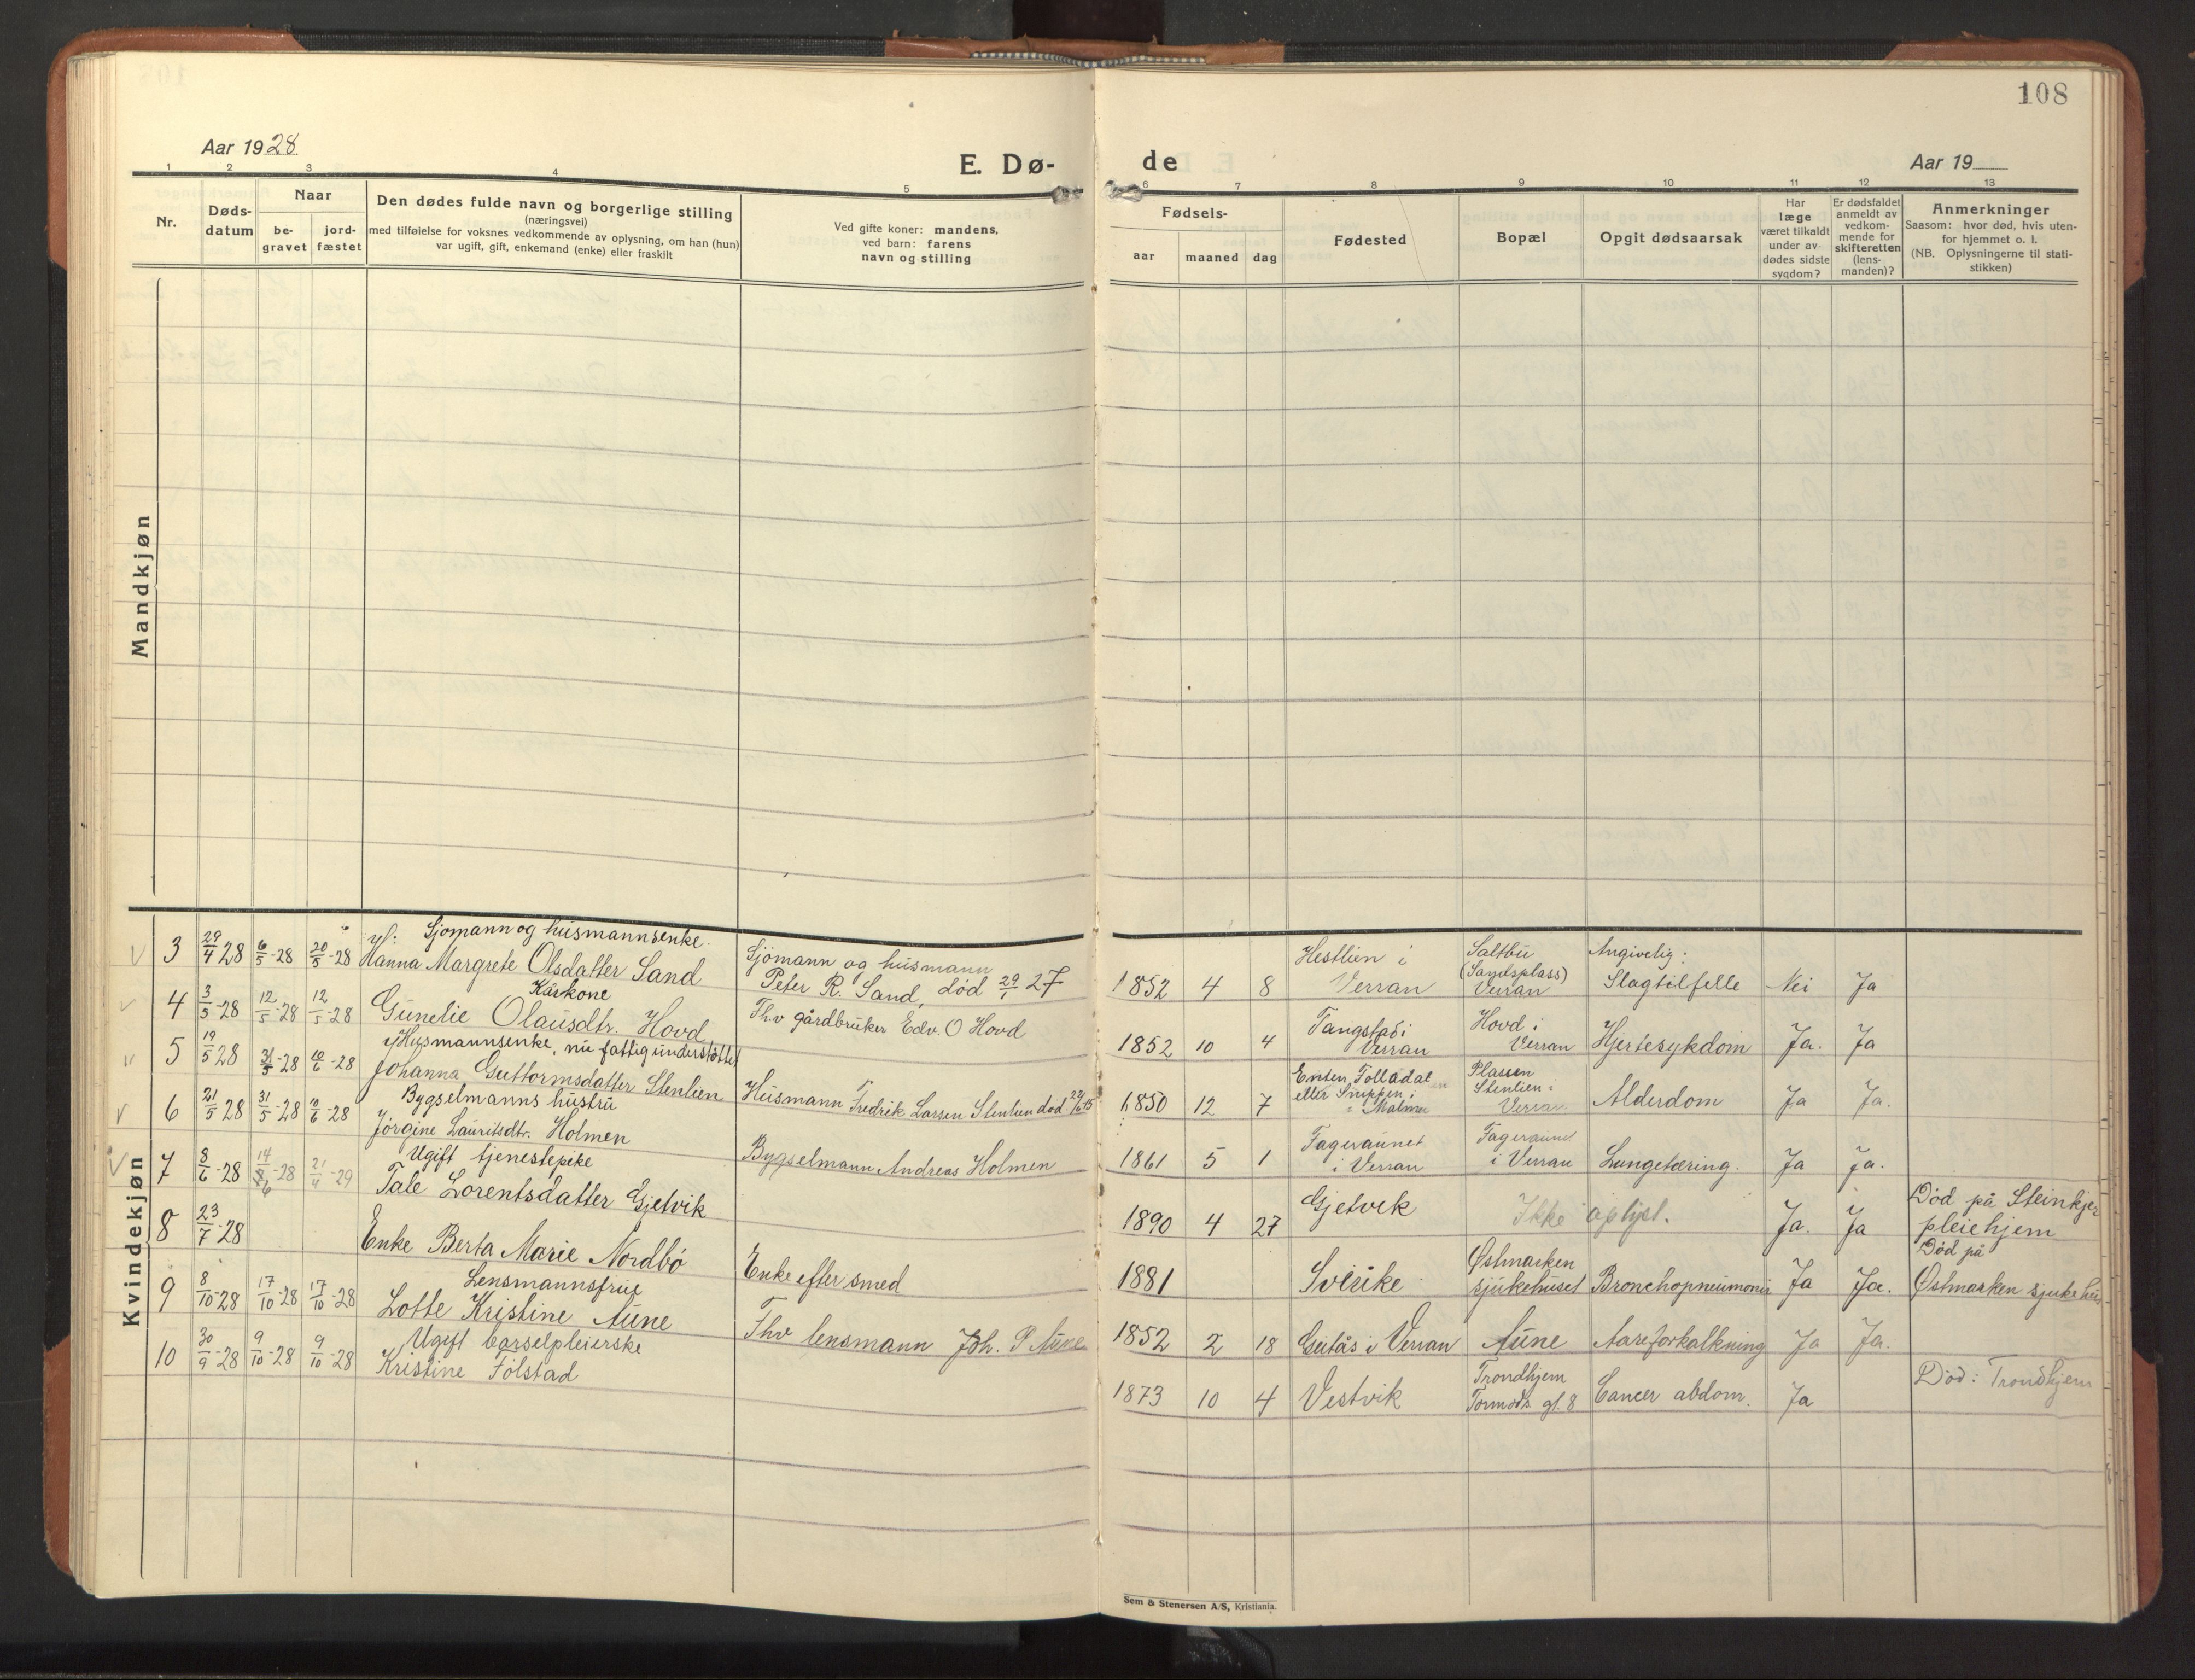 108
Aar 1928
E. Dø-
de
Aar 19
1 2 3 4 5 6 7 8 9 10 11 12 13
Nr.
Døds-
datum
Naar
be-
gravet
jord-
fæstet
Den dødes fulde navn og borgerlige stilling
(næringsvei)
med tilføielse for voksnes vedkommende av oplysning, om han (hun)
var ugift, gift, enkemand (enke) eller fraskilt
Ved gifte koner: mandens,
ved barn: farens
navn og stilling
Fødsels-
aar maaned dag
Fødested
Bopæl
Opgit dødsaarsak
Har
læge
været tilkaldt
under av-
dødes sidste
sygdom?
Er dødsfaldet
anmeldt av
vedkom-
mende for
skifteretten
(lens-
manden)?
Anmerkninger
Saasom: hvor død, hvis uten-
for hjemmet o. l.
(NB. Oplysningerne til stati-
stikken)
Mandkjøn
Kvindekjøn
Sjømann og husmannsenke.
3 29/4 28 6/5-28 20/5-28 Hanna Margrete Olsdatter Sand
Sjömann og husmann
Peter R. Sand, död 29/1 27
1852 4 8
Hestlien i
Verran
Saltbu
(Sandsplass)
Verran
Angivelig:
Slagtilfelle Nei Ja
Kårkone
4 3/5-28 12/5-28 12/5-28 Gunelie Olausdtr. Hovd
Fhv gårdbruker Edv. O Hovd
1852 10 4
Tangstad i
Verran
Hovd i
Verran
Hjertesykdom Ja. Ja
Husmannsenke, nu fattigunderstöttet
5 19/5 28 31/5-28 10/6-28 Johanna Guttormsdatter Stenlien
Husmann Fredrik Larsen Stenlien död
1850 12 7
Enten Folladal
eller Snippen i
Malmer
Plassen
Stenlien i
Verran
Alderdom Ja Ja.
Bygselmanns hustru
6 21/5 28 31/5-28 10/6-28 Jörgine Lauritsdtr. Holmen
Bygselmann Andreas Holmen
1861 5 1
Fageraunet
i Verran
Fageraunet
i Verran
Lungetæring. Ja Ja.
Ugift tjenestepike
7 8/6-28 14/6-28 21/4-29 Tale Lorentsdatter Gjetvik
1890 4 27 Gjetvik Ikke oplyst. Ja. Ja
Död på Steinkjer
pleiehjem
8 23/7-28 Enke Berta Marie Nordbö
Enke efter smed
1881
Svirike
Østmarken
sjukehuset
Bronchopneumoni Ja Ja.
Död på
Østmarken sjukehus
Lensmannsfrue
9 8/10-28 17/10-28 17/10-28 Lotte Kristine Aune
Fhv lensmann Joh. P Aune
1852 2 18 Geitås i Verran Aune Aareforkalkning Ja Ja.
Ugift barselpleierske
10 30/9-28 9/10-28 9/10-28 Kristine Folstad
1873 10 4 Vestvik
Trondhjem
Tormods gt. 8
Cancer abdom. Ja
Död: Trondhjem
Sem & Stenersen A/S, Kristiania.